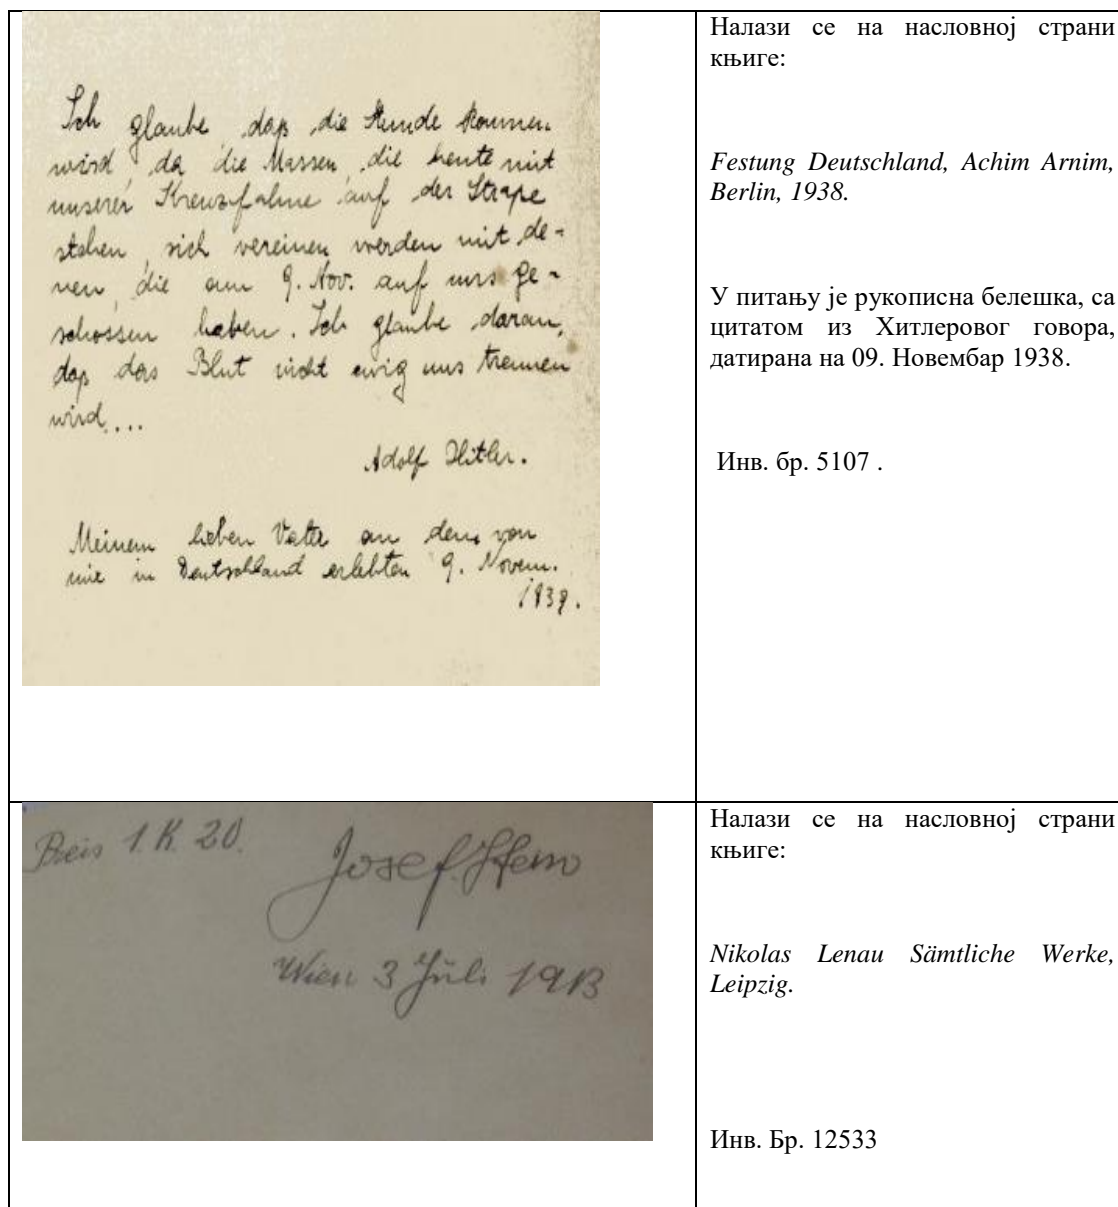 Ich glaube dass die Stunde kommen
wird, da die Massen, die heute mit
unserer Kreuzfahne auf der Straße
stehen, sich vereinen werden mit de-
nen, die am 9. Nov. auf uns ge-
schossen haben. Ich glaube daran,
dass das Blut nicht ewig uns trennen
wird....
Adolf Hitler.
Meinem lieben Vater an dem von
mir in Deutschland erlebten 9. Novem.
Налази се на насловној страни
књиге:
Festung Deutschland, Achim Arnim,
Berlin, 1938.
У питању је рукописна белешка, са
цитатом из Хитлеровог говора,
датирана на 09. Новембар 1938.
Инв. бр. 5107 .
Preis 1.K.20.
Josef
Wien 3 Juli 1913
Налази се на насловној страни
књиге:
Nikolas Lenau Sämtliche Werke,
Leipzig.
Инв. Бр. 12533